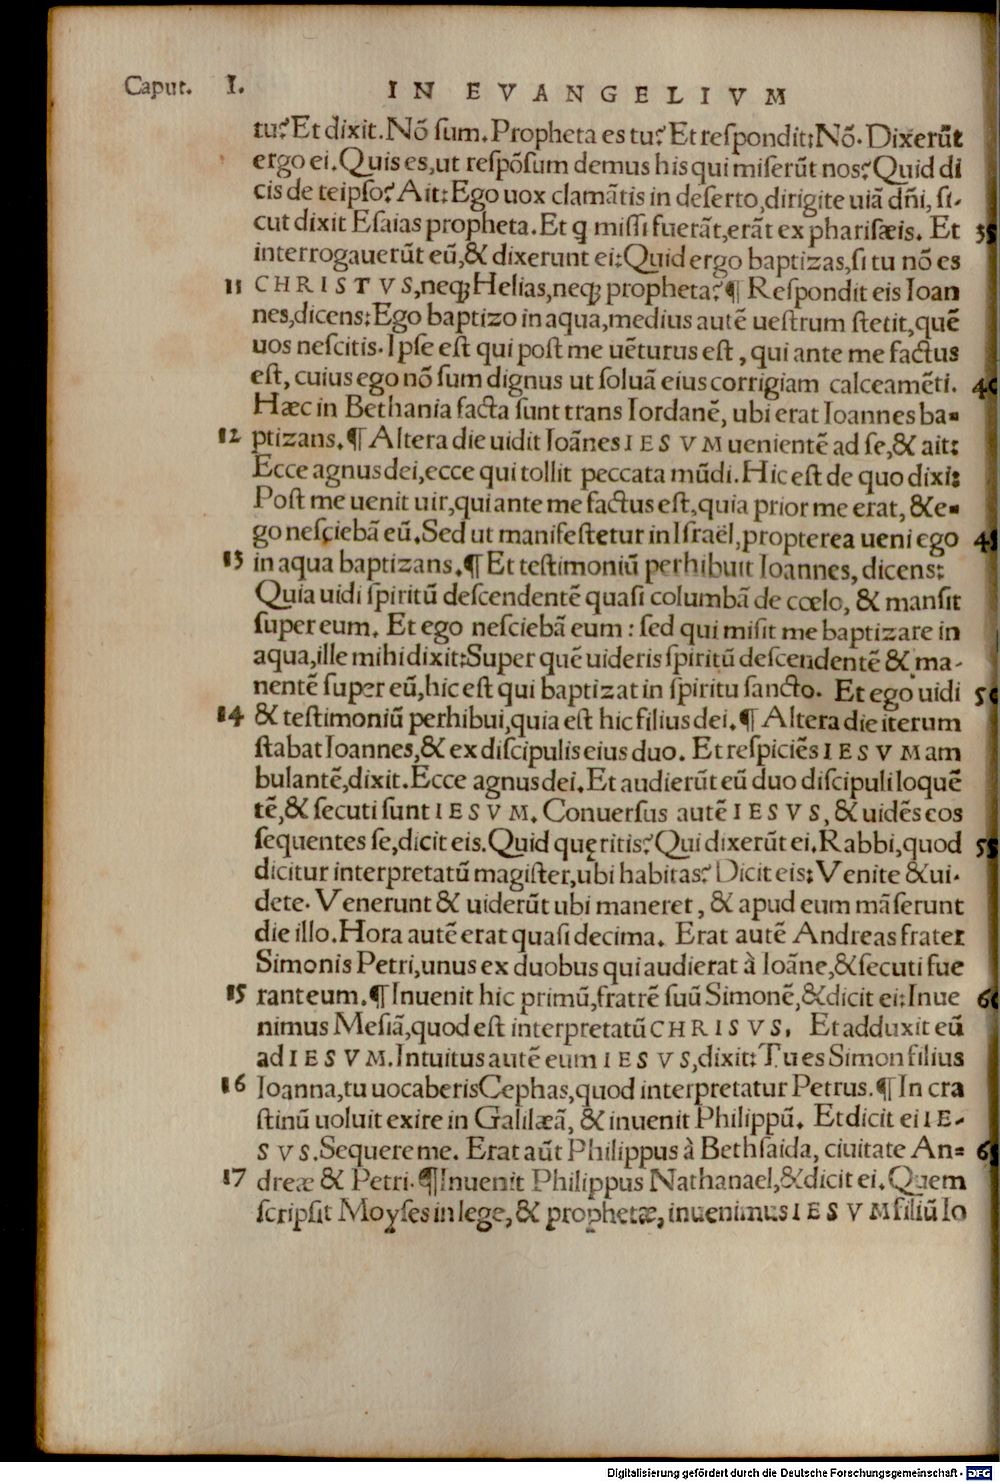 Caput. I. IN EVANGELIVM
tu? Et dixit. Nō ſum. Propheta es tu? Et reſpondit: Nō. Dixerūt
ergo ei. Quis es, ut reſpōſum demus his qui miſerūt nos? Quid di
cis de teipſo? Ait: Ego uox clamātis in deſerto, dirigite uiā dn̄i, ſi-
cut dixit Eſaias propheta. Et q miſſi fuerāt, erāt ex phariſæis. Et 35
interrogauerūt eū, & dixerunt ei: Quid ergo baptizas, ſi tu nō es
11 CHRISTVS, neq; Helias, neq; propheta? ¶ Reſpondit eis Ioan
nes, dicens: Ego baptizo in aqua, medius autē ueſtrum ſtetit, quē
uos neſcitis. Ipſe eſt qui poſt me uēturus eſt, qui ante me factus
eſt, cuius ego nō ſum dignus ut ſoluā eius corrigiam calceamēti. 40
Hæc in Bethania facta ſunt trans Iordanē, ubi erat Ioannes ba-
12 ptizans. ¶ Altera die uidit Ioānes IESVM uenientē ad ſe, & ait:
Ecce agnus dei, ecce qui tollit peccata mūdi. Hic eſt de quo dixi:
Poſt me uenit uir, qui ante me factus eſt, quia prior me erat, & e-
go neſciebā eū. Sed ut manifeſtetur in Iſraël, propterea ueni ego 45
13 in aqua baptizans. ¶ Et teſtimoniū perhibuit Ioannes, dicens:
Quia uidi ſpiritū deſcendentē quaſi columbā de cœlo, & manſit
ſuper eum. Et ego neſciebā eum: ſed qui miſit me baptizare in
aqua, ille mihi dixit: Super quē uideris ſpiritū deſcendentē & ma-
nentē ſuper eū, hic eſt qui baptizat in ſpiritu ſancto. Et ego uidi 50
14 & teſtimoniū perhibui, quia eſt hic filius dei. ¶ Altera die iterum
ſtabat Ioannes, & ex diſcipulis eius duo. Et reſpiciēs IESVM am
bulantē, dixit. Ecce agnus dei. Et audierūt eū duo diſcipuli loquē
tē, & ſecuti ſunt IESVM. Conuerſus autē IESVS, & uidēs eos
ſequentes ſe, dicit eis. Quid quęritis? Qui dixerūt ei. Rabbi, quod 55
dicitur interpretatū magiſter, ubi habitas? Dicit eis: Venite & ui-
dete. Venerunt & uiderūt ubi maneret, & apud eum māſerunt
die illo. Hora autē erat quaſi decima. Erat autē Andreas frater
Simonis Petri, unus ex duobus qui audierat à Ioāne, & ſecuti fue
15 rant eum. ¶ Inuenit hic primū, fratrē ſuū Simonē, & dicit ei: Inue 60
nimus Meſiā, quod eſt interpretatū CHRISVS, Et adduxit eū
ad IESVM. Intuitus autē eum IESVS, dixit: Tu es Simon filius
16 Ioanna, tu uocaberis Cephas, quod interpretatur Petrus. ¶ In cra
ſtinū uoluit exire in Galilæā, & inuenit Philippū. Et dicit ei IE-
SVS. Sequere me. Erat aūt Philippus à Bethſaida, ciuitate An- 65
17 dreæ & Petri. ¶ Inuenit Philippus Nathanael, & dicit ei. Quem
ſcripſit Moyſes in lege, & prophetæ, inuenimus IESVM filiū Io
Digitalisierung gefördert durch die Deutsche Forschungsgemeinschaft - DFG